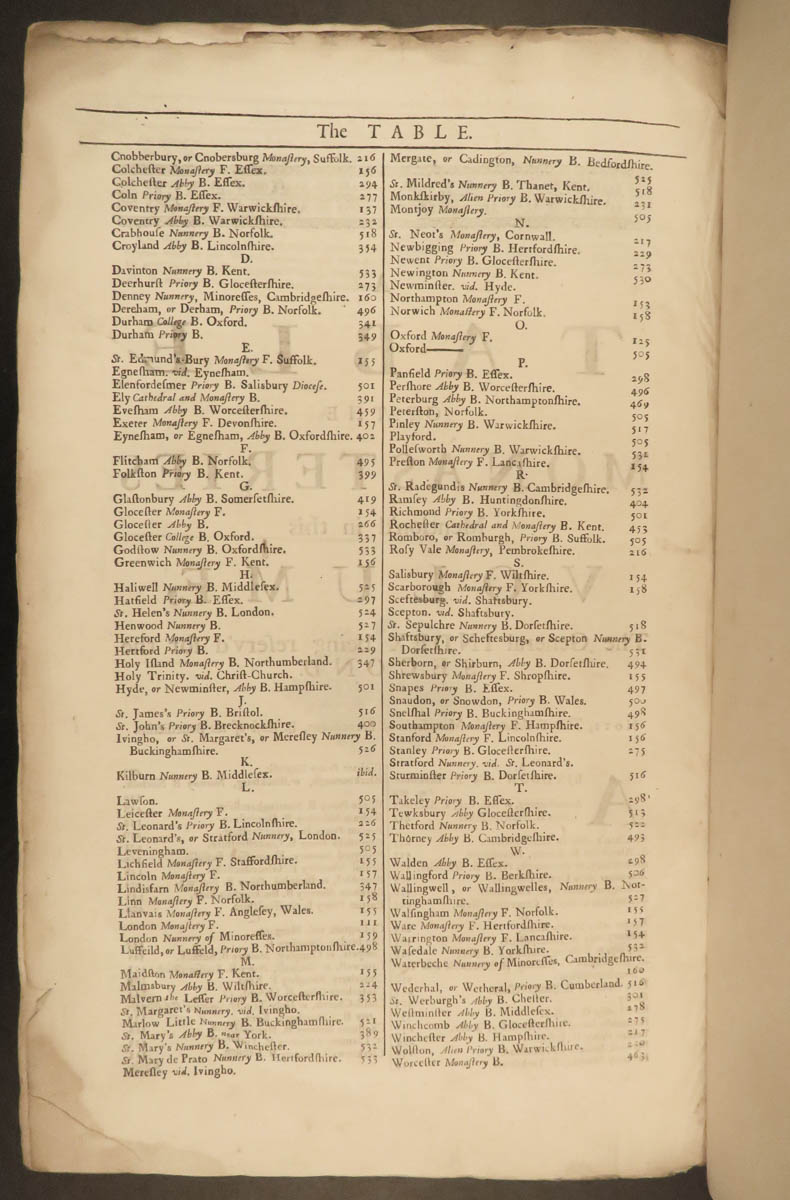 The TABLE.
Cnobberbury, or Cnobersburg Monaſtery, Suffolk. 216
Colcheſter Monaſtery F. Eſſex. 156
Colcheſter Abby B. Eſſex. 294
Coln Priory B. Eſſex. 277
Coventry Monaſtery F. Warwickſhire. 137
Coventry Abby B. Warwickſhire. 232
Crabhouſe Nunnery B. Norfolk. 518
Croyland Abby B. Lincolnſhire. 354
D.
Davinton Nunnery B. Kent. 533
Deerhurſt Priory B. Gloceſterſhire. 273
Denney Nunnery, Minoreſſes, Cambridgeſhire. 160
Dereham, or Derham, Priory B. Norfolk. 496
Durham College B. Oxford. 341
Durham Priory B. 349
E.
St. Edmund's-Bury Monaſtery F. Suffolk. 155
Egneſham. vid. Eyneſham.
Elenfordeſmer Priory B. Salisbury Dioceſe. 501
Ely Cathedral and Monaſtery B. 391
Eveſham Abby B. Worceſterſhire. 459
Exeter Monaſtery F. Devonſhire. 157
Eyneſham, or Egneſham, Abby B. Oxfordſhire. 402
F.
Flitcham Abby B. Norfolk. 495
Folkſton Priory B. Kent. 399
G.
Glaſtonbury Abby B. Somerſetſhire. 419
Gloceſter Monaſtery F. 154
Gloceſter Abby B. 266
Gloceſter College B. Oxford. 337
Godſtow Nunnery B. Oxfordſhire. 533
Greenwich Monaſtery F. Kent. 156
H.
Haliwell Nunnery B. Middleſex. 525
Hatfield Priory B. Eſſex. 297
St. Helen's Nunnery B. London. 524
Henwood Nunnery B. 527
Hereford Monaſtery F. 154
Hertford Priory B. 229
Holy Iſland Monaſtery B. Northumberland. 347
Holy Trinity. vid. Chriſt-Church.
Hyde, or Newminſter, Abby B. Hampſhire. 501
J.
St. James's Priory B. Briſtol. 516
St. John's Priory B. Brecknockſhire. 400
Ivingho, or St. Margaret's, or Mereſley Nunnery B.
Buckinghamſhire. 526
K.
Kilburn Nunnery B. Middleſex. ibid.
L.
Lawſon. 505
Leiceſter Monaſtery F. 154
St. Leonard's Priory B. Lincolnſhire. 226
St. Leonard's, or Stratford Nunnery, London. 525
Leveningham. 505
Lichfield Monaſtery F. Staffordſhire. 155
Lincoln Monaſtery F. 157
Lindisfarn Monaſtery B. Northumberland. 347
Linn Monaſtery F. Norfolk. 158
Llanvais Monaſtery F. Angleſey, Wales. 155
London Monaſtery F. 111
London Nunnery of Minoreſſes. 159
Luffeild, or Luffeld, Priory B. Northamptonſhire. 498
M.
Maidſton Monaſtery F. Kent. 155
Malmsbury Abby B. Wiltſhire. 224
Malvern the Leſſer Priory B. Worceſterſhire. 353
St. Margaret's Nunnery. vid. Ivingho.
Marlow Little Nunnery B. Buckinghamſhire. 521
St. Mary's Abby B. near York. 389
St. Mary's Nunnery B. Wincheſter. 532
St. Mary de Prato Nunnery B. Hertfordſhire. 533
Mereſley vid. Ivingho.
Mergate, or Cadington, Nunnery B. Bedfordſhire.
525
St. Mildred's Nunnery B. Thanet, Kent. 518
Monkſkirby, Alien Priory B. Warwickſhire. 231
Montjoy Monaſtery. 505
N.
St. Neot's Monaſtery, Cornwall. 217
Newbigging Priory B. Hertfordſhire. 229
Newent Priory B. Gloceſterſhire. 273
Newington Nunnery B. Kent. 530
Newminſter. vid. Hyde.
Northampton Monaſtery F. 153
Norwich Monaſtery F. Norfolk. 158
O.
Oxford Monaſtery F. 125
Oxford—— 505
P.
Panfield Priory B. Eſſex. 298
Perſhore Abby B. Worceſterſhire. 496
Peterburg Abby B. Northamptonſhire. 469
Peterſton, Norfolk. 505
Pinley Nunnery B. Warwickſhire. 517
Playford. 505
Polleſworth Nunnery B. Warwickſhire. 532
Preſton Monaſtery F. Lancaſhire. 154
R.
St. Radegundis Nunnery B. Cambridgeſhire. 532
Ramſey Abby B. Huntingdonſhire. 404
Richmond Priory B. Yorkſhire. 501
Rocheſter Cathedral and Monaſtery B. Kent. 453
Romboro, or Romburgh, Priory B. Suffolk. 505
Roſy Vale Monaſtery, Pembrokeſhire. 216
S.
Salisbury Monaſtery F. Wiltſhire. 154
Scarborough Monaſtery F. Yorkſhire. 158
Sceftesburg. vid. Shaftsbury.
Scepton. vid. Shaftsbury.
St. Sepulchre Nunnery B. Dorſetſhire. 518
Shaftsbury, or Scheftesburg, or Scepton Nunnery B.
Dorſetſhire. 531
Sherborn, or Shirburn, Abby B. Dorſetſhire. 494
Shrewsbury Monaſtery F. Shropſhire. 155
Snapes Priory B. Eſſex. 497
Snaudon, or Snowdon, Priory B. Wales. 500
Snelſhal Priory B. Buckinghamſhire. 498
Southampton Monaſtery F. Hampſhire. 156
Stanford Monaſtery F. Lincolnſhire. 156
Stanley Priory B. Gloceſterſhire. 275
Stratford Nunnery. vid. St. Leonard's.
Sturminſter Priory B. Dorſetſhire. 516
T.
Takeley Priory B. Eſſex. 298
Tewksbury Abby Gloceſterſhire. 513
Thetford Nunnery B. Norfolk. 522
Thorney Abby B. Cambridgeſhire. 493
W.
Walden Abby B. Eſſex. 298
Wallingford Priory B. Berkſhire. 506
Wallingwell, or Wallingwelles, Nunnery B. Not-
tinghamſhire. 527
Walſingham Monaſtery F. Norfolk. 155
Ware Monaſtery F. Hertfordſhire. 157
Warrington Monaſtery F. Lancaſhire. 154
Waſedale Nunnery B. Yorkſhire. 532
Waterbeche Nunnery of Minoreſſes, Cambridgeſhire.
160
Wederhal, or Wetheral, Priory B. Cumberland. 516
St. Werburgh's Abby B. Cheſter. 301
Weſtminſter Abby B. Middleſex. 278
Winchcomb Abby B. Gloceſterſhire. 275
Wincheſter Abby B. Hampſhire. 217
Wolſton, Alien Priory B. Warwickſhire.
Worceſter Monaſtery B. 463